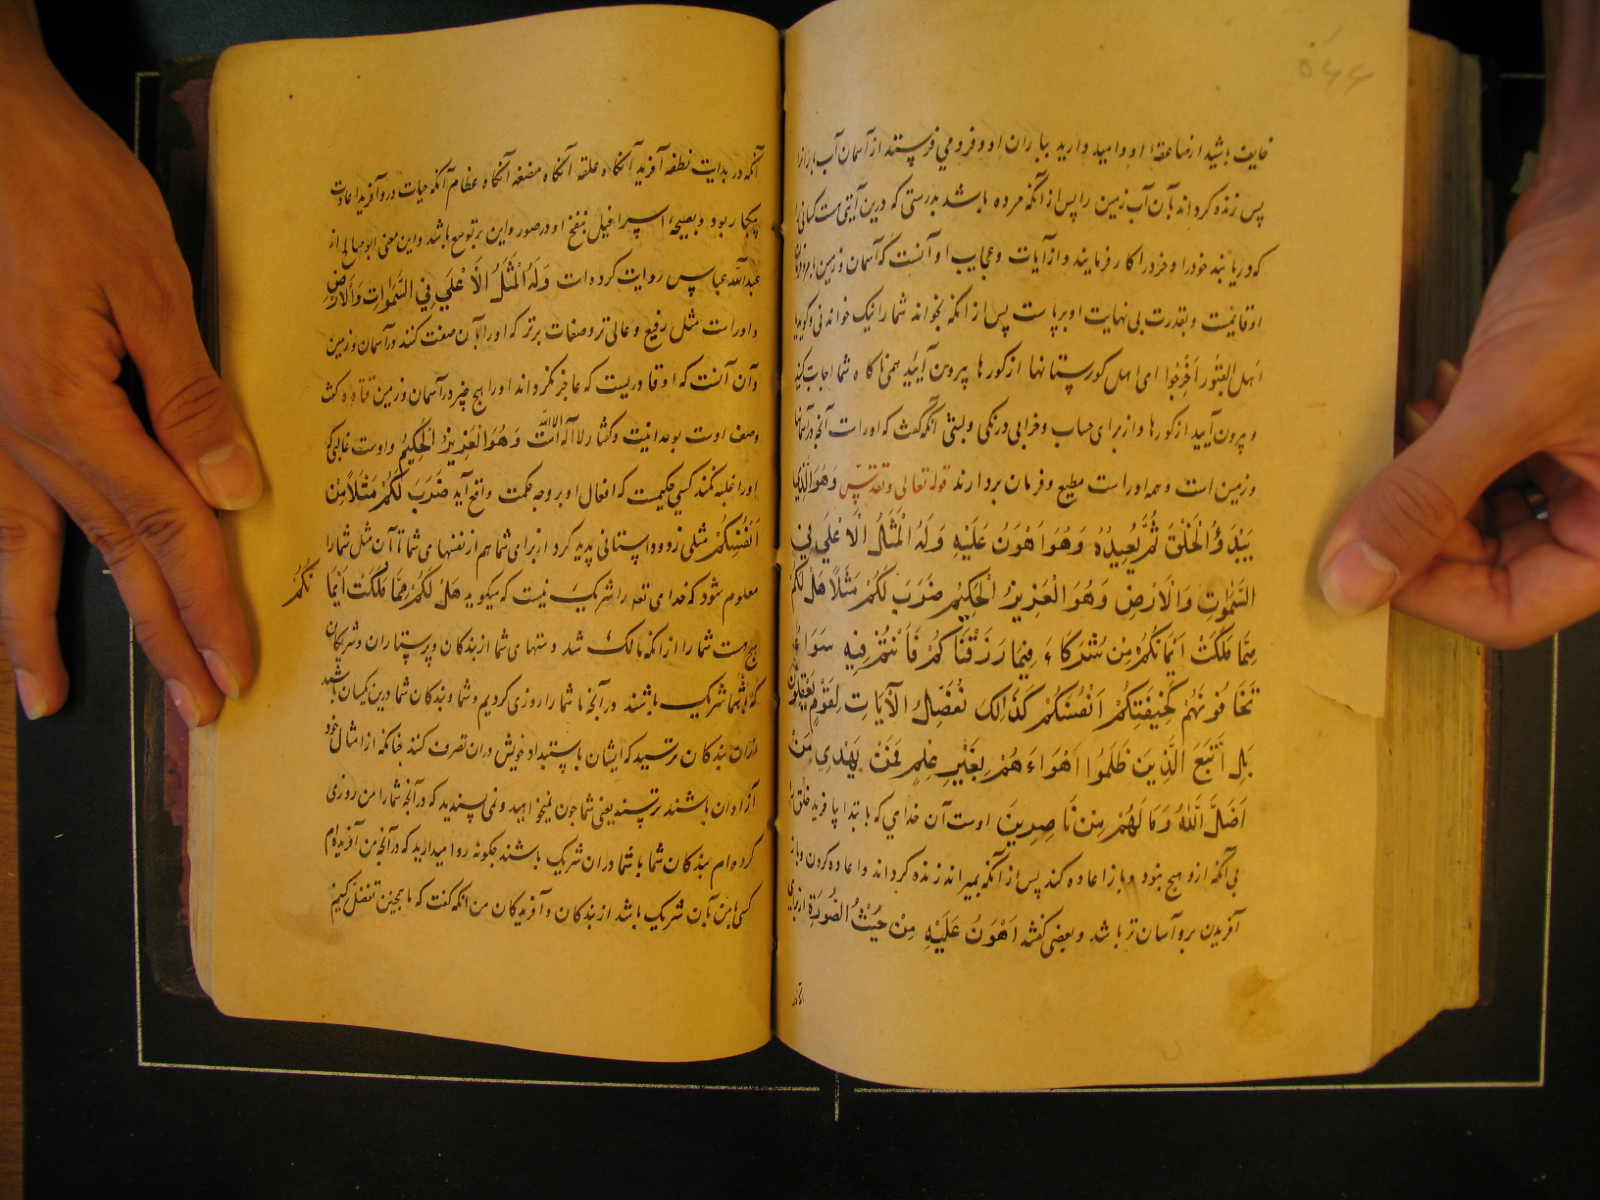 ۵۴۴
خایف باشید از صاعقهٔ او و امید وارید بباران او و فرو می فرستد از آسمان آب باران را
پس زنده کرداند بآن آب زمین را پس از آنکه مرده باشد بدرستی که درین آیتی است کسانی را
که دریابند خود را و خرد را کار فرمایند و از آیات و عجایب او آنست که آسمان و زمین
او قایمست و بقدرت بی نهایت او بر پاست پس از آنکه بخواند شما را نیک خواندنی و کوید
اهل القبور اخرجوا ای اهل کورستانها از کورها بیرون آیید همی ناکاه شما اجابت کنید
و بیرون آیید از کورها و از برای حساب و خرابی درنکی و لبثی آنکه کفت که اوراست آنچه در آسمانها
و زمین است و همه اوراست مطیع و فرمان بردارند قوله تعالی و تقدس وَهُوَ الَّذِي
يَبْدَؤُا الْخَلْقَ ثُمَّ يُعِيدُهُ وَهُوَ اَهْوَنُ عَلَيْهِ وَلَهُ الْمَثَلُ الْاَعْلَي فِي
السَّمٰوَاتِ وَالْاَرْضِ وَهُوَ الْعَزِيزُ الْحَكِيمُ ضَرَبَ لَكُمْ مَثَلًا هَلْ لَكُمْ
مِمَّا مَلَكَتْ اَيْمَانُكُمْ مِنْ شُرَكَاءَ فِيمَا رَزَقْنَاكُمْ فَاَنْتُمْ فِيهِ سَوَاءٌ
تَخَافُونَهُمْ كَخِيفَتِكُمْ اَنْفُسَكُمْ كَذٰلِكَ نُفَصِّلُ الْآيَاتِ لِقَوْمٍ يَعْقِلُونَ
بَلِ اتَّبَعَ الَّذِينَ ظَلَمُوا اَهْوَاءَهُمْ بِغَيْرِ عِلْمٍ فَمَنْ يَهْدِي مَنْ
اَضَلَّ اللّٰهُ وَمَا لَهُمْ مِنْ نَاصِرِينَ اوست آن خدایی که با بتدا پیافرید خلق را
بی آنکه ازو هیچ بنود و باز اعاده کند پس از آنکه بمیراند زنده کرداند و اعاده کردن و باز
آفریدن برو آسان تر باشد و بعضی کفتند اَهْوَنُ عَلَيْهِ مِنْ حَيْثُ الصُّورَةِ از برای
آنکه در
آنکه در بدایت نطفه آفرید آنکاه علقه آنکاه مضغه آنکاه عظام آنکه حیات درو آفرید اعادت
بیکبار بود و بصیحهٔ اسرافیل بنفخ او در صور و این بر توسع باشد و این معنی ابو صالح از
عبدالله عباس روایت کرده است وَلَهُ الْمَثَلُ الْاَعْلَي فِي السَّمٰوَاتِ وَالْاَرْضِ
و اوراست مثل رفیع و عالی تر و صفات برتر که اورا بآن صفت کنند در آسمان و زمین
و آن آنست که او قادریست که عاجز نکرداند اورا هیچ چیز در آسمان و زمین قتاده کفت
وصف اوست بوحدانیت و کفتار لا اله الا الله است وَهُوَ الْعَزِيزُ الْحَكِيمُ و اوست غالبی که
اورا غلبه نکند کسی حکیمست که افعال او بر وجه حکمت واقع آید ضَرَبَ لَكُمْ مَثَلًا مِنْ
اَنْفُسِكُمْ مثلی زد و داستانی پدید کرد از برای شما هم از نفسهای شما تا آن مثل شما را
معلوم شود که خدای تعا را شریک نیست که میکوید هَلْ لَكُمْ مِمَّا مَلَكَتْ اَيْمَانُكُمْ
هیچ هست شما را از آنکه مالک شد دستهای شما از بندکان و پرستاران و شریکان
که با شما شریک باشند در آنچه ما شما را روزی کردیم و شما و بندکان شما درین یکسان باشید
از آن بندکان مترسید که ایشان باستبداد خویش در آن تصرف کنند چنانکه از امثال خود
آزادان باشند ترسند یعنی شما چون نمیخواهید و نمی پسندید که در آنچه شما را من روزی
کرده ام بندکان شما با شما در آن شریک باشند چکونه روا میدارید که در آنچه من آفریده ام
کسی با من بآن شریک باشد از بندکان و آفریدکان من آنکه کفت که ما همچنین تفصیل کنیم